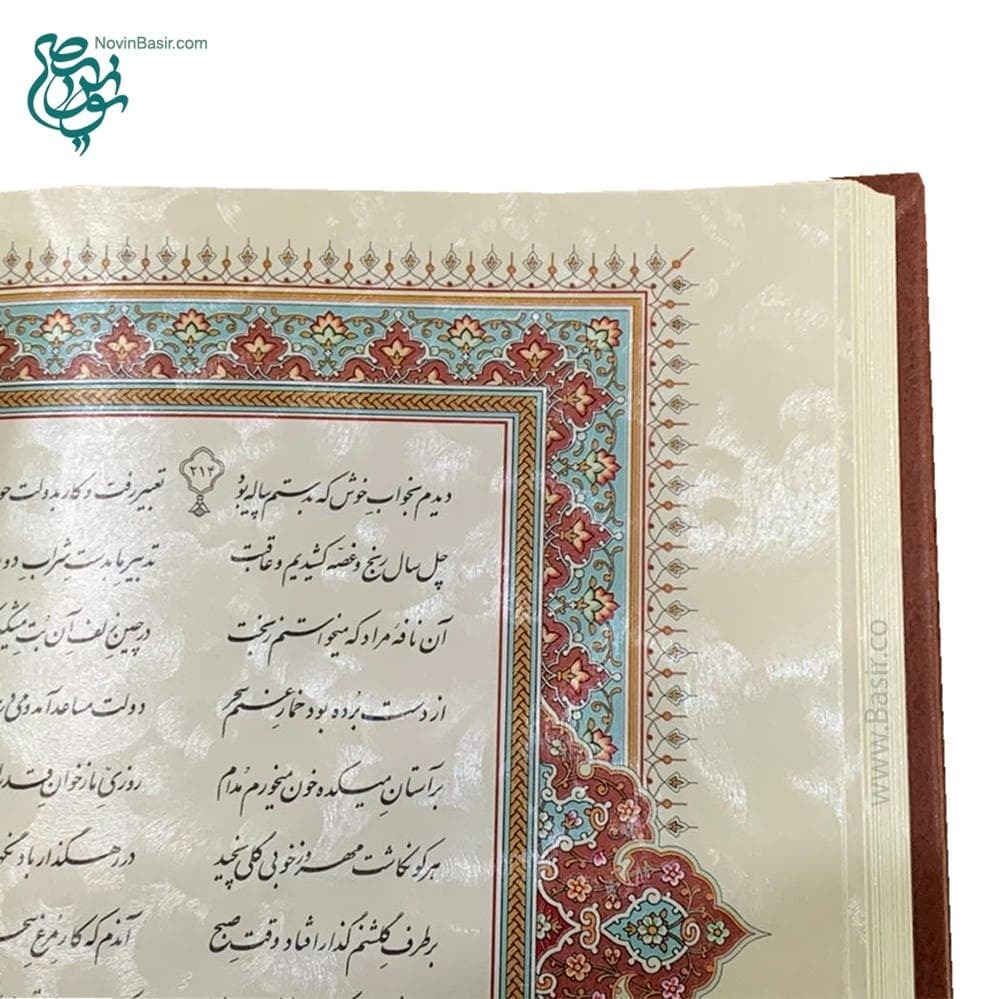 NovinBasir.com
نوین بصیر
۲۱۴
دیدم بخواب خوش که بدستم پیاله بود تعبیر رفت و کار بدولت
چل سال رنج و غصّه کشیدیم و عاقبت تدبیر ما بدستِ شرابِ
آن نافهٔ مراد که میخواستم ز بخت در چینِ زلف آن بُت
از دست بُرده بود خمارِ غمم سحر دولت مساعد آمد و می
بر آستان میکده خون میخورم مُدام روزیِّ ما ز خوانِ
هر کو نکاشت مهر و ز خوبی گلی نچید در رهگذار باد
بر طرف گلشنم گذار افتاد وقت صبح آندم که کار مُرغِ
www.Basir.co